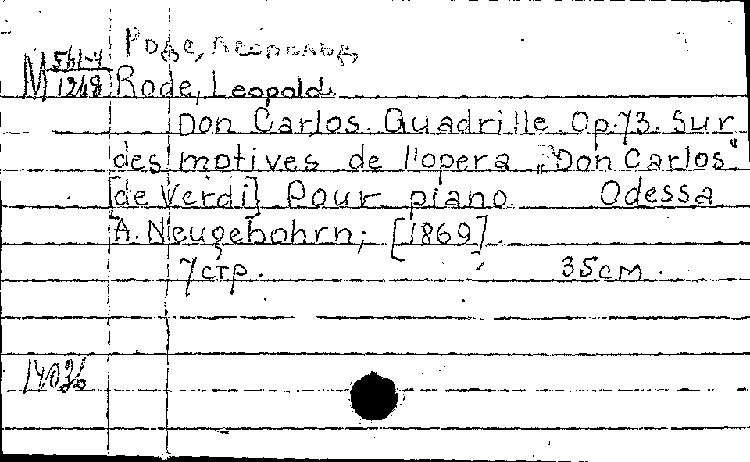 Роде, Леопольд
М 561-7/1268 Rode, Leopold.
Don Carlos. Quadrille. Op.73. Sur
des motives de l'opera "Don Carlos"
[de Verdi] Pour piano Odessa
A. Neugebohrn; [1869].
7 стр. 35 см.
14026